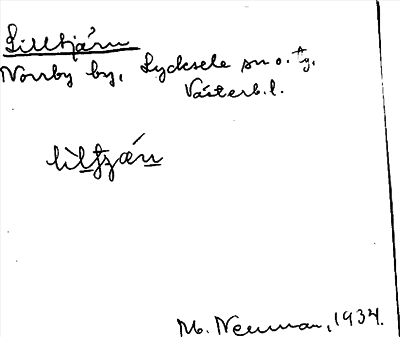 Lilltjärn
Norrby by, Lycksele sn o. tg,
Västerb. l.
M. Neuman, 1934.